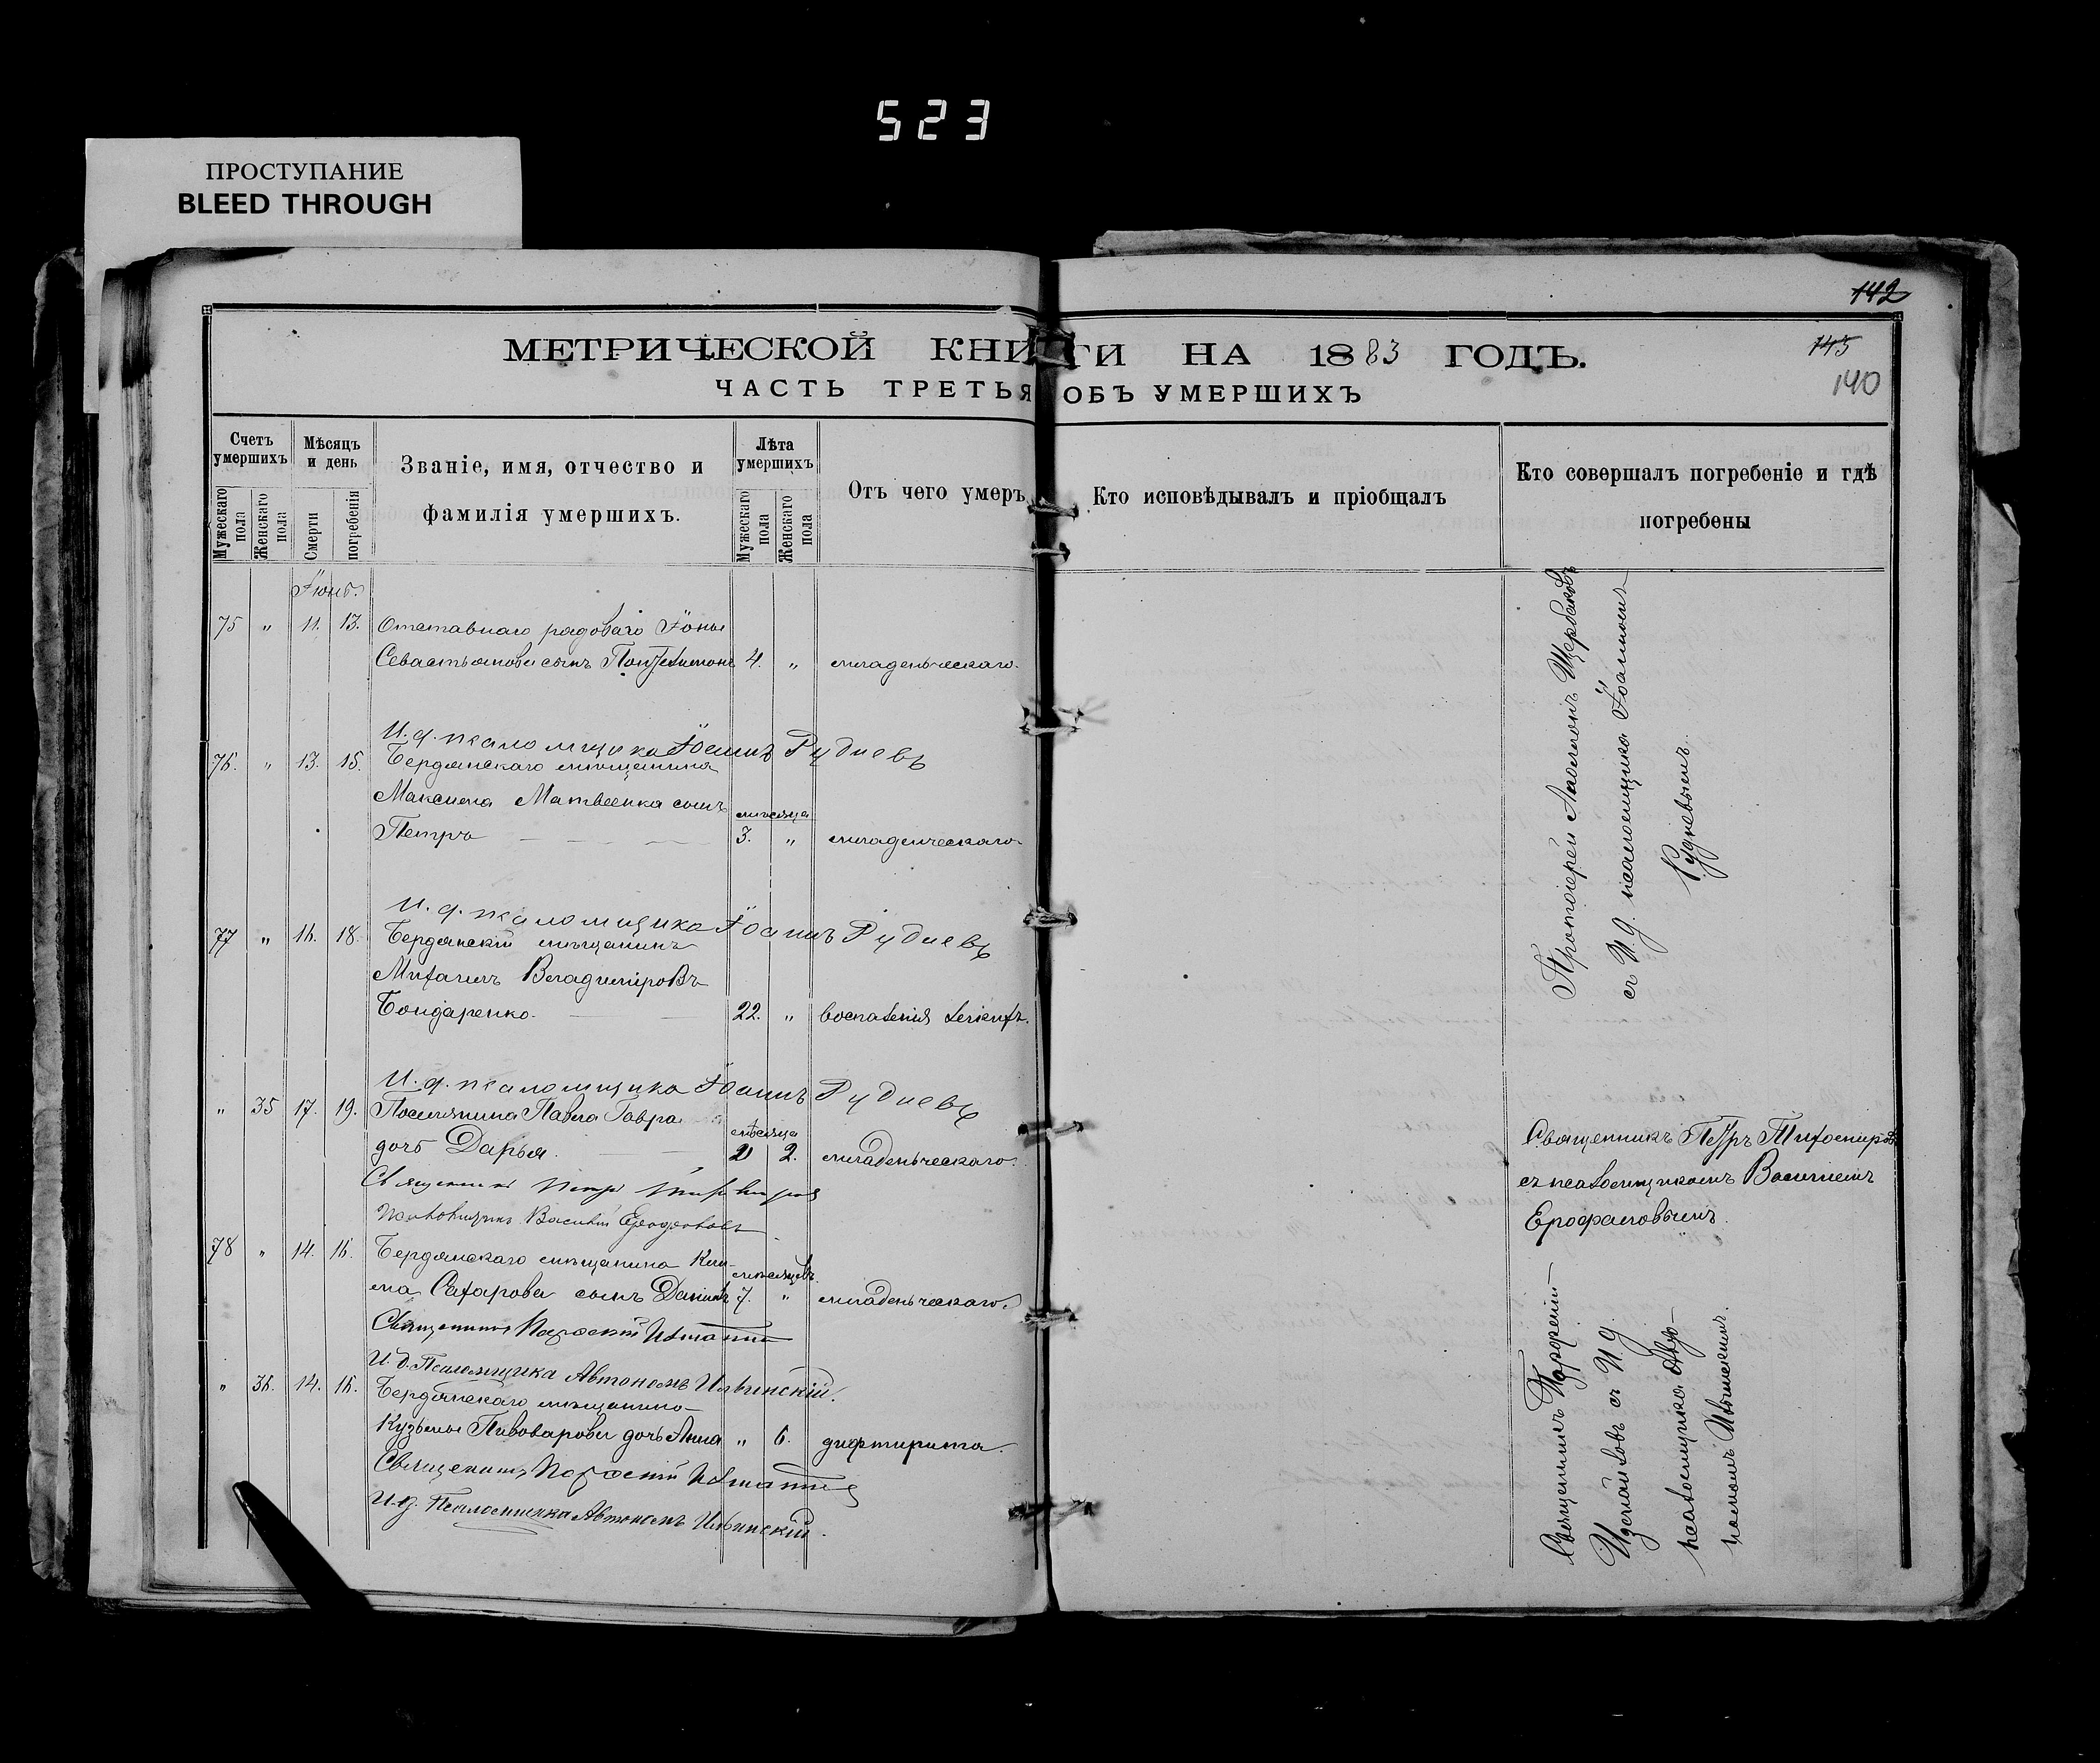 523
ПРОСТУПАНИЕ
BLEED THROUGH
142
МЕТРИЧЕСКОЙ КНИГИ НА 1883 ГОДЪ.
145
ЧАСТЬ ТРЕТЬЯ ОБЪ УМЕРШИХЪ
140
Счетъ умершихъ
Мужескаго пола
Женскаго пола
Мѣсяцъ и день
Смерти
погребенія
Званіе, имя, отчество и
фамилія умершихъ.
Лѣта умершихъ
Мужескаго пола
Женскаго пола
Отъ чего умеръ
Кто исповѣдывалъ и пріобщалъ
Кто совершалъ погребеніе и гдѣ
погребены
Іюнь.
75 " 11. 13. Отставнаго рядоваго Іоны
Севастьянова сынъ Пантелимонъ 4. " младенческаго.
И. д. псаломщика Іоаннъ Рудневъ
76. " 13. 15. Бердянскаго мѣщанина
Максима Матвеенка сынъ
мѣсяца
Петръ 3. " младенческаго.
И. д. псаломщика Іоаннъ Рудневъ
77 " 16. 18. Бердянскій мѣщанинъ
Михаилъ Владиміровъ
Бондаренко. 22. " воспаленія легкихъ.
И. д. псаломщика Іоаннъ Рудневъ
" 35 17. 19. Поселянина Павла Гавра
мѣсяца
дочь Дарья. 2. младенческаго.
Священникъ Петръ
Псаломщикъ Василій Ерофаловъ
78 " 14. 16. Бердянскаго мѣщанина Кли-
мѣсяцевъ.
ма Сахарова сынъ Даніилъ 7. " младенческаго.
Священникъ
И. д. Псаломщика Автономъ Ильинскій.
" 36. 14. 16. Бердянскаго мѣщанина
Кузьмы Пивоварова дочь Анна " 6. дифтирита.
Священникъ
И. д. Псаломщика Автономъ Ильинскій.
Протоіерей Щербаковъ
съ И. д. псаломщика Іоанномъ
Рудневымъ.
Священникъ Петръ Тихоміровъ
съ псаломщикомъ Василіемъ
Ерофаловымъ.
Священникъ
съ И. д.
псаломщика Авто-
номомъ Ильинскимъ.